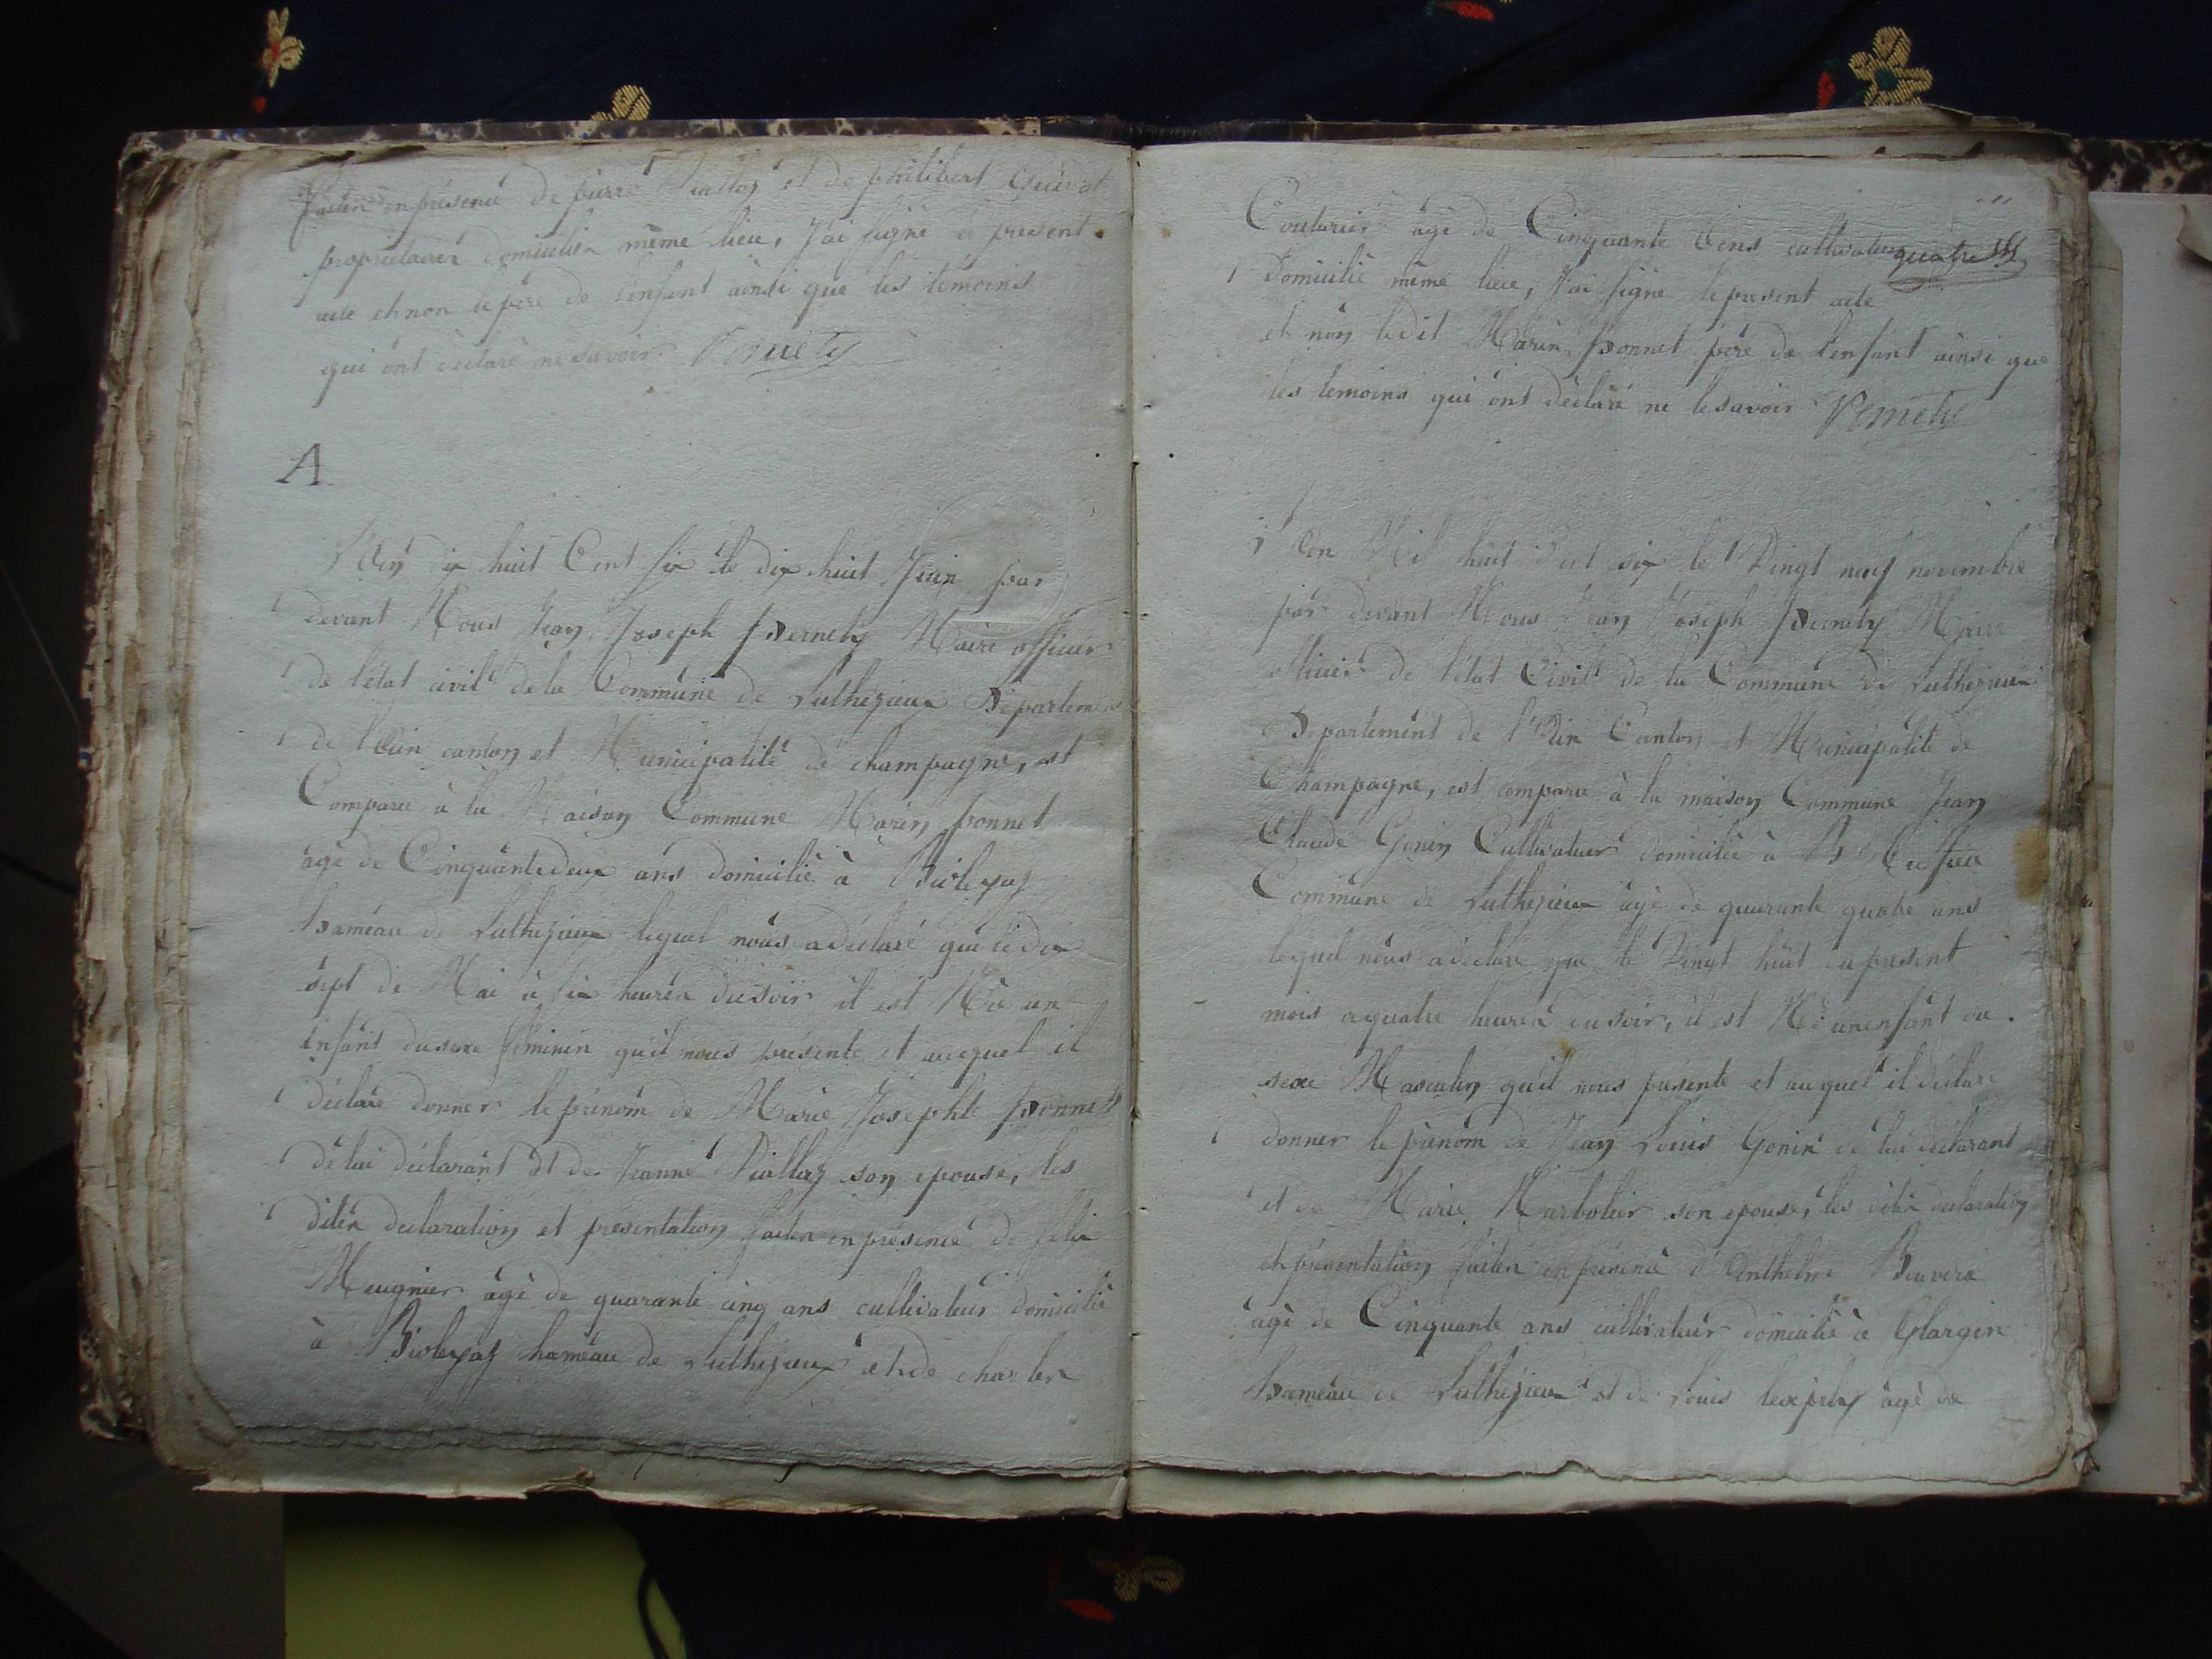 faites en présence de pierre et de philibert
propriétaires domiciliés même lieu, J'ai signé le present
acte et non le père de l'enfant ainsi que les témoins
qui ont déclaré ne savoir. Pernety
A
L'An dix huit Cent six le dix huit Juin par
devant Nous Jean Joseph Pernety Maire officier
de l'état civil de la Commune de Luthezieux Departement
de l'Ain canton et Municipalité de champagne, est
Comparu à la Maison Commune Marin Bonnet
âgé de Cinquante deux ans domicilié à Biolepaz
hameau de Luthezieux lequel nous a déclaré que le dix
sept de Mai à six heures du soir il est Né un
enfant du sexe féminin qu'il nous présente et auquel il
déclare donner le prénom de Marie Josephte Bonnet
de lui déclarant et de Jeanne son epouse, les
dites declaration et présentation faites en présence de felix
Meugnier âgé de quarante cinq ans cultivateur domicilié
à Biolepaz hameau de Luthezieux et de charles
Couturier âgé de Cinquante ans cultivateur quatre
domicilié même lieu, J'ai signé le present acte
et non ledit Marin Bonnet père de l'enfant ainsi que
les temoins qui ont déclaré ne le savoir Pernety
L'An Mil huit Cent six le Vingt neuf novembre
par devant Nous Jean Joseph Pernety Maire
officier de l'état Civil de la Commune de Luthezieux
Departement de l'Ain Canton et Municipalité de
Champagne, est comparu à la maison Commune Jean
Claude Gonin Cultivateur domicilié à
Commune de Luthezieux âgé de quarante quatre ans
lequel nous a déclaré que le Vingt huit du present
mois a quatre heures du soir, il est Né un enfant du
sexe Masculin qu'il nous presente et auquel il déclare
donner le prénom de Jean Louis Gonin de lui déclarant
et de Marie son epouse, les dites declaration
et présentation faites en présence d'Anthelme
âgé de Cinquante ans cultivateur domicilié à
hameau de Luthezieux et de Louis âgé de